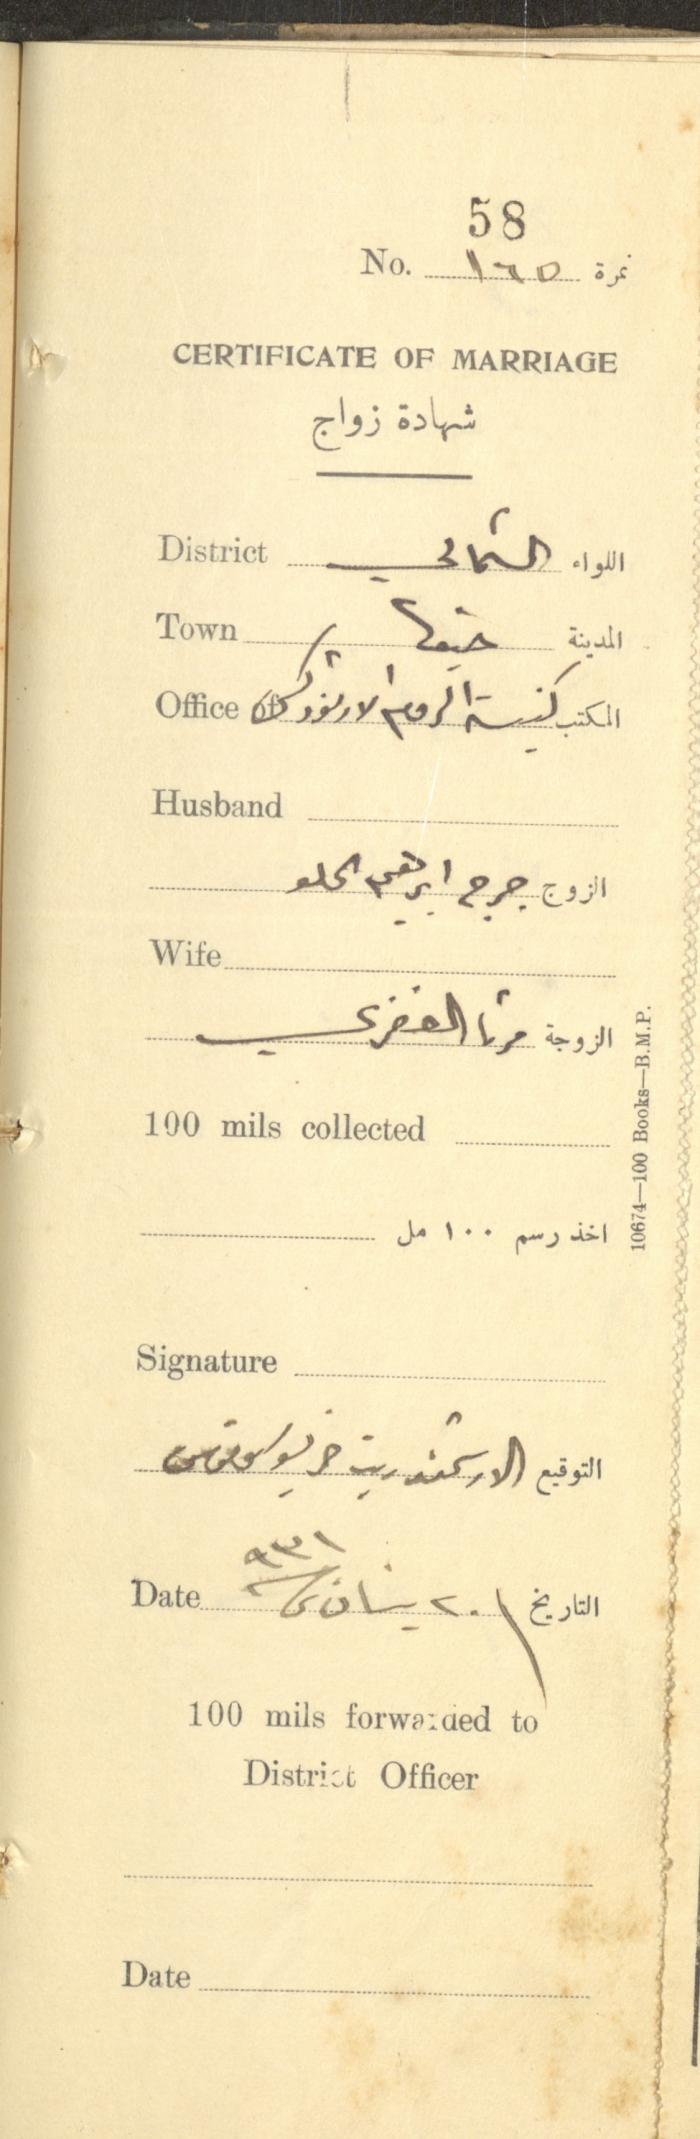 58
No. ١٦٥ نمرة
CERTIFICATE OF MARRIAGE
شهادة زواج
District الشمالي اللواء
Town حيفا المدينة
Office of كنيسة الروم الارثوذكس المكتب
Husband
الزوج جرجي ابرهيم الحلو
Wife
الزوجة مرتا الغفري
100 mils collected
اخذ رسم ١٠٠ مل
Signature
التوقيع الارشمندريت
Date ٢٠ نيسان ٩٣١ التاريخ
100 mils forwarded to
District Officer
Date
10674—100 Books—B.M.P.